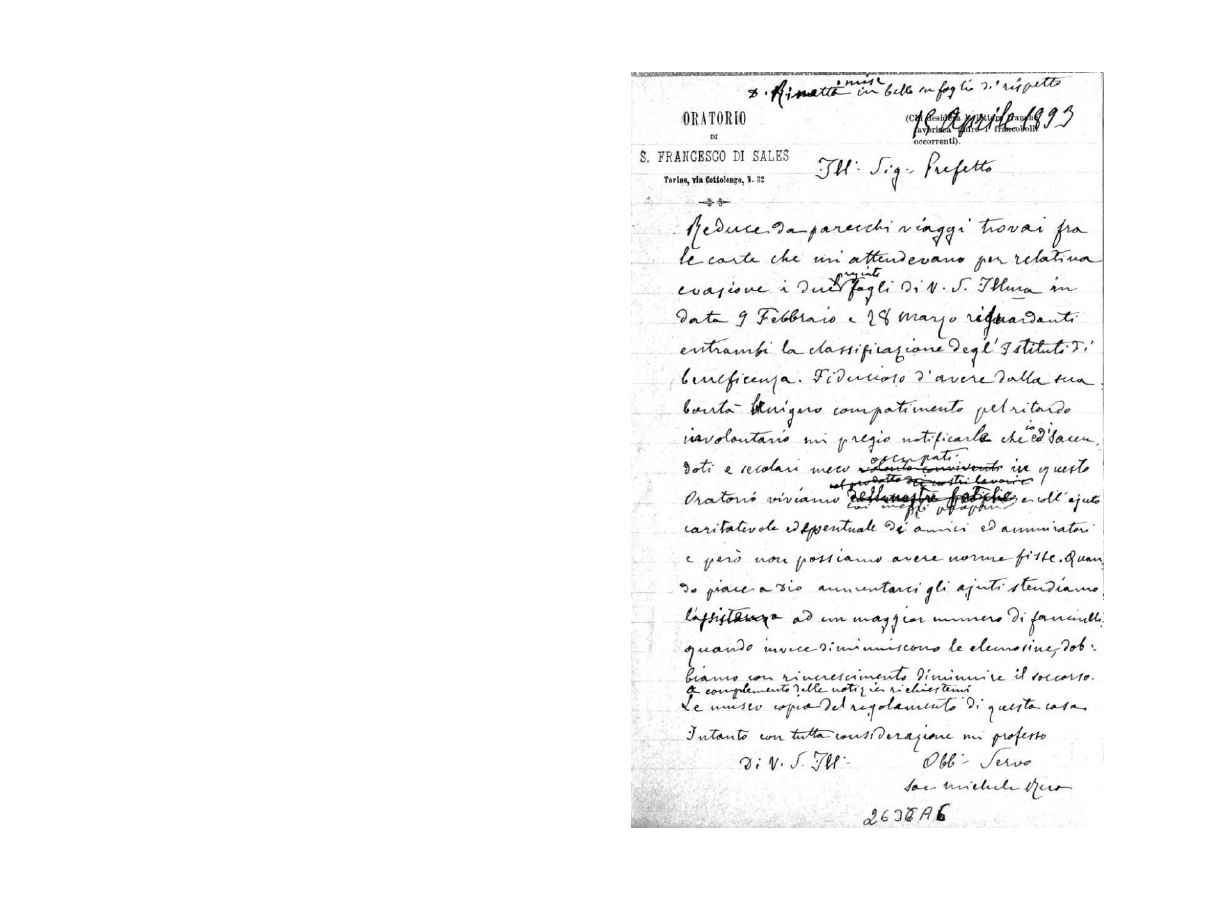 D. Rinetti mise in bello su foglio di rispetto
ORATORIO
DI
S. FRANCESCO DI SALES
Torino, via Cottolengo, N. 32
(Chi desidera lettera franca
favorisca unire i francobolli
occorrenti).
15 Aprile 1893
Ill: Sig: Prefetto
Reduce da parecchi viaggi trovai fra
le carte che mi attendevano per relativa
pregiati
evasione i due fogli di V. S. Illma in
data 9 Febbraio e 28 marzo riguardanti
entrambi la classificazione degl' Istituti di
beneficenza. Fiducioso d'avere dalla sua
bontà benigno compatimento pel ritardo
involontario mi pregio notificarle che io ed i Sacer-
occupati
doti e secolari meco conviventi in questo
col prodotto dei nostri lavori
Oratorio viviamo delle nostre fatiche e coll' ajuto
coi mezzi
caritatevole ed eventuale di amici ed ammiratori
e però non possiamo avere norme fisse. Quan
do piace a Dio aumentarci gli ajuti stendiamo
l'assistenza ad un maggior numero di fanciulli:
quando invece diminuiscono le elemosine, dob-
biamo con rincrescimento diminuire il soccorso.
a complemento delle notizie richiestemi
Le unisco copia del regolamento di questa casa
Intanto con tutta considerazione mi professo
Di V. S. Ill:
Obb: Servo
Sac Michele Rua